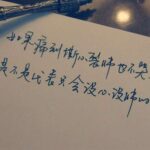 如果痛到撕心裂肺也不哭
是不是代表只会没心没肺的